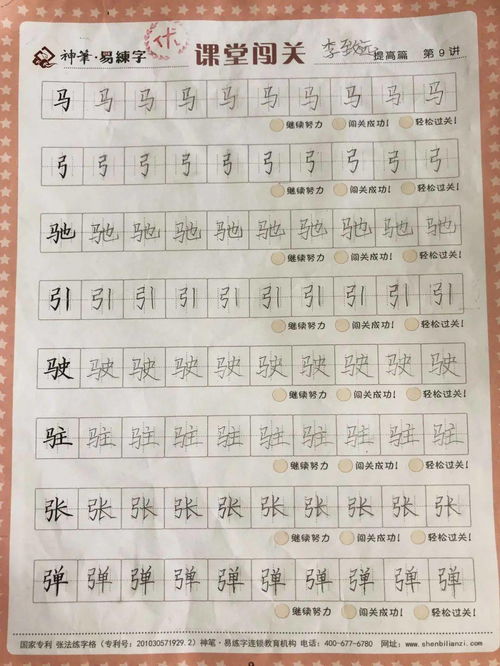 神筆·易練字 优 课堂闯关 李致远 提高篇 第9讲
马 马 马 马 马 马 马 马 马 马
继续努力 闯关成功! 轻松过关!
弓 弓 弓 弓 弓 弓 弓 弓 弓 弓
继续努力 闯关成功! 轻松过关!
驰 驰 驰 驰 驰 驰 驰 驰 驰 驰
继续努力 闯关成功! 轻松过关!
引 引 引 引 引 引 引 引 引 引
继续努力 闯关成功! 轻松过关!
驶 驶 驶 驶 驶 驶 驶 驶 驶 驶
继续努力 闯关成功! 轻松过关!
驻 驻 驻 驻 驻 驻 驻 驻 驻 驻
继续努力 闯关成功! 轻松过关!
张 张 张 张 张 张 张 张 张 张
继续努力 闯关成功! 轻松过关!
弹 弹 弹 弹 弹 弹 弹 弹 弹 弹
继续努力 闯关成功! 轻松过关!
国家专利 张法练字格（专利号：201030571929.2）神笔·易练字连锁教育机构 电话：400-677-6780 网址：www.shenbilianzi.com